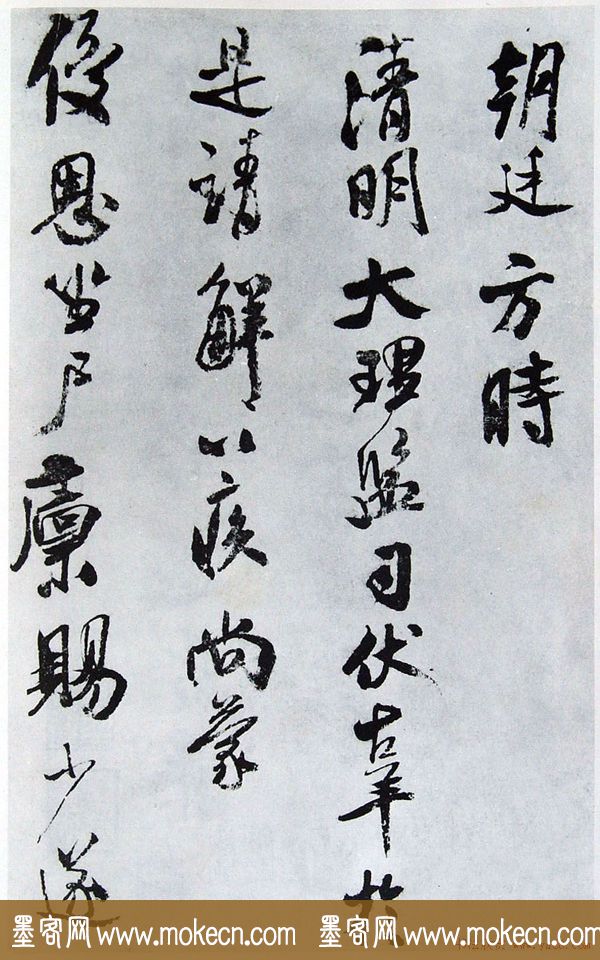 朝廷方時
清明大理監司伏辜於
是請解以疾尚蒙
優恩坐尸廩賜少遂
墨客网 www.mokecn.com 墨客网 www.mokecn.com